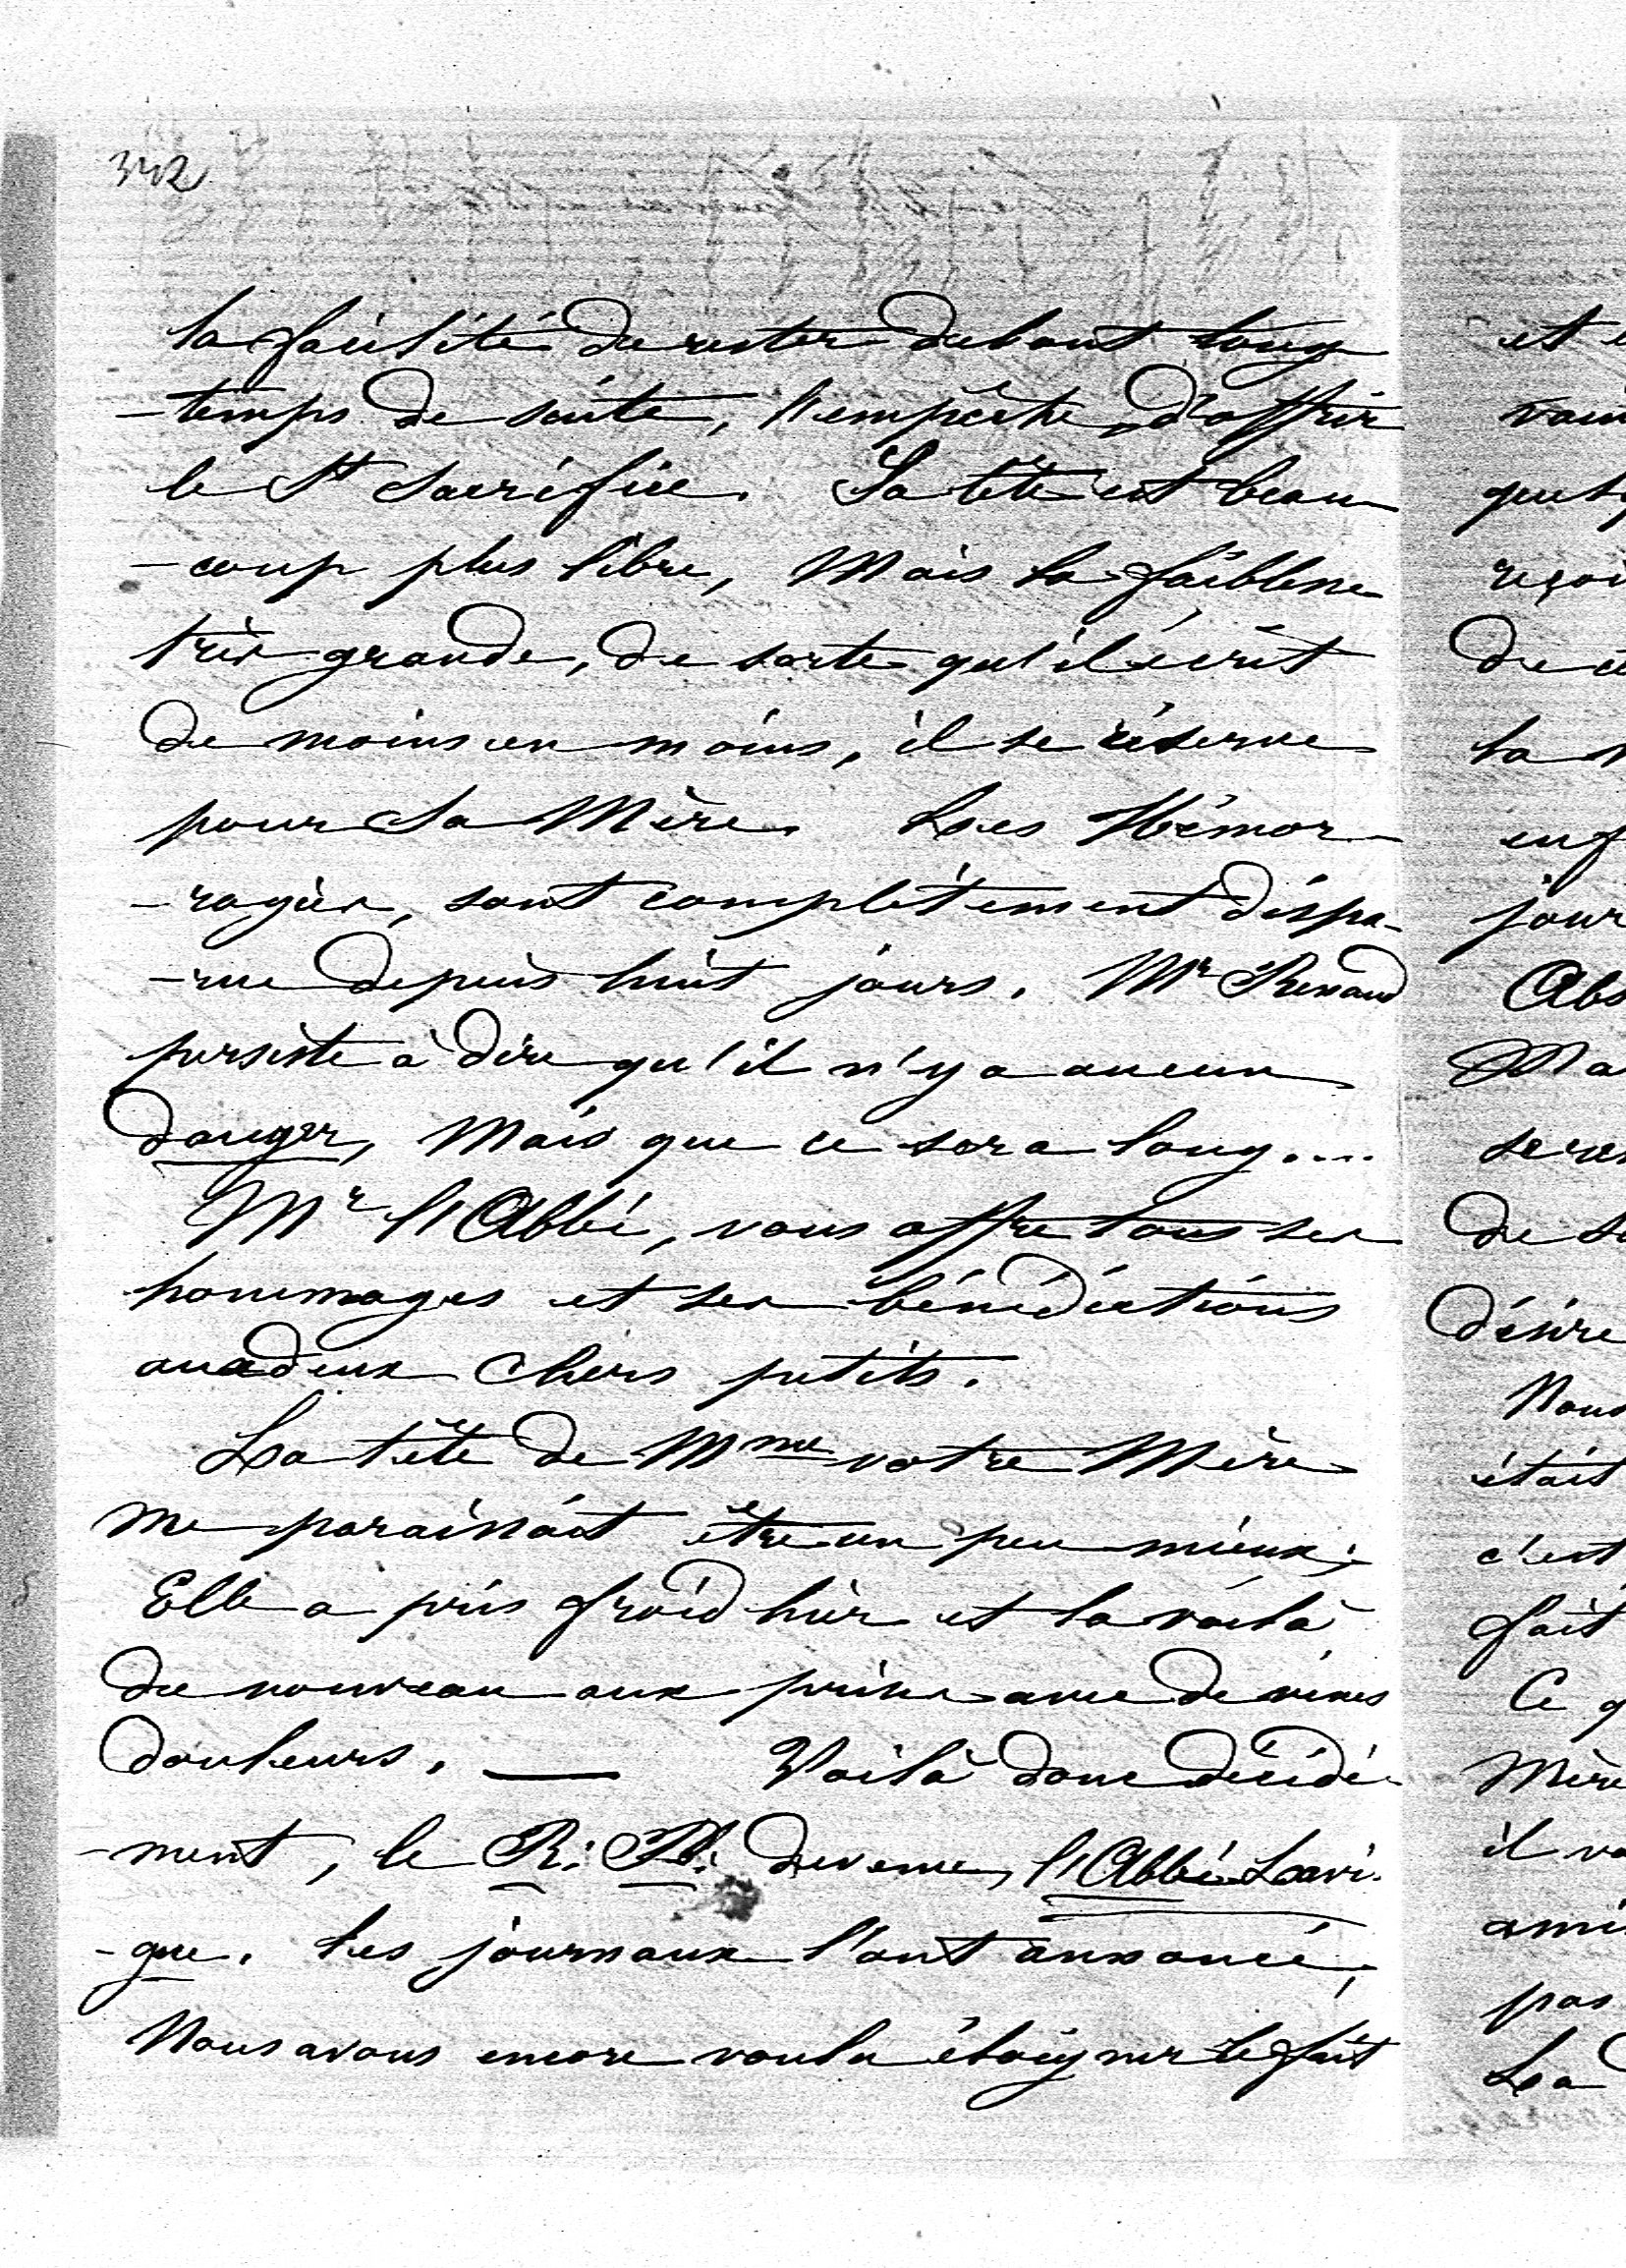 342
la facilité de rester debout long
-temps de suite, l'empêche d'offrir
le St Sacrifice. La tête est beau
-coup plus libre, Mais la faiblesse
très grande, de sorte qu'il écrit
de moins en moins, il se réserve
pour Sa Mère. Les Hémor
-ragies, sont complètement dispa-
-rue depuis huit jours. Mr Renaud
persiste à dire qu'il n'y a aucun
danger, Mais que ce sera long....
Mr l'Abbé, vous offre tous ses
hommages et ses bénédictions
aux deux Chers petits.
La tête de Mme votre Mère
me paraissait être un peu mieux;
Elle a pris froid hier et la voilà
de nouveau aux prises avec de vives
douleurs. — Voilà donc décidé
-ment, le R. P. devenu, l'Abbé Lavi
-gue. Les journaux l'ont annoncé;
Nous avons encore voulu éloigner le fait
et
de
la
enf
jour
Abs
Ma
de
désire
Nous
était
c'est
fait
Ce
Mère
il
pas
La